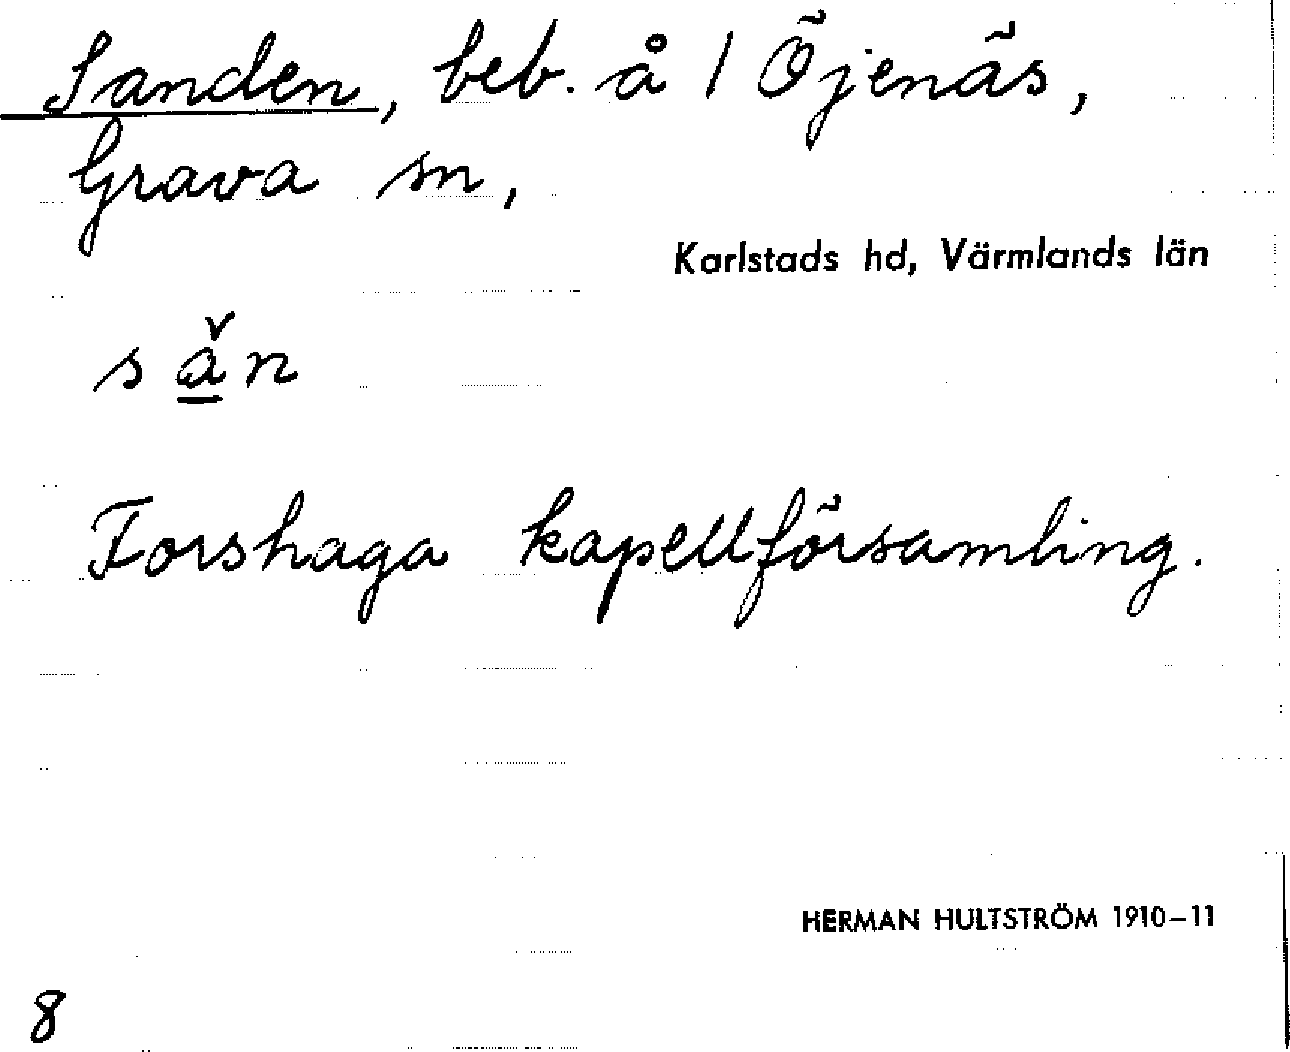 Sanden, beb. å 1 Öjenäs,
Grava sn,
Karlstads hd, Värmlands län
sǎ̱n
Forshaga kapellförsamling.
HERMAN HULTSTRÖM 1910–11
8